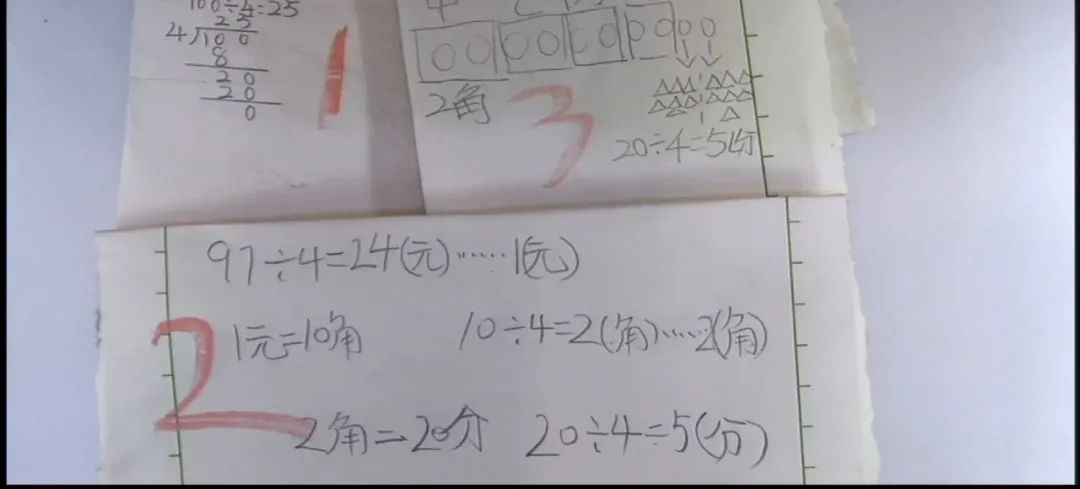 100÷4=25
25
4100
8
20
20
0
1
2角
3
20÷4=5(分
97÷4=24(元)……1(元)
1元=10角
10÷4=2(角)……2(角)
2
2角=20分
20÷4=5(分)